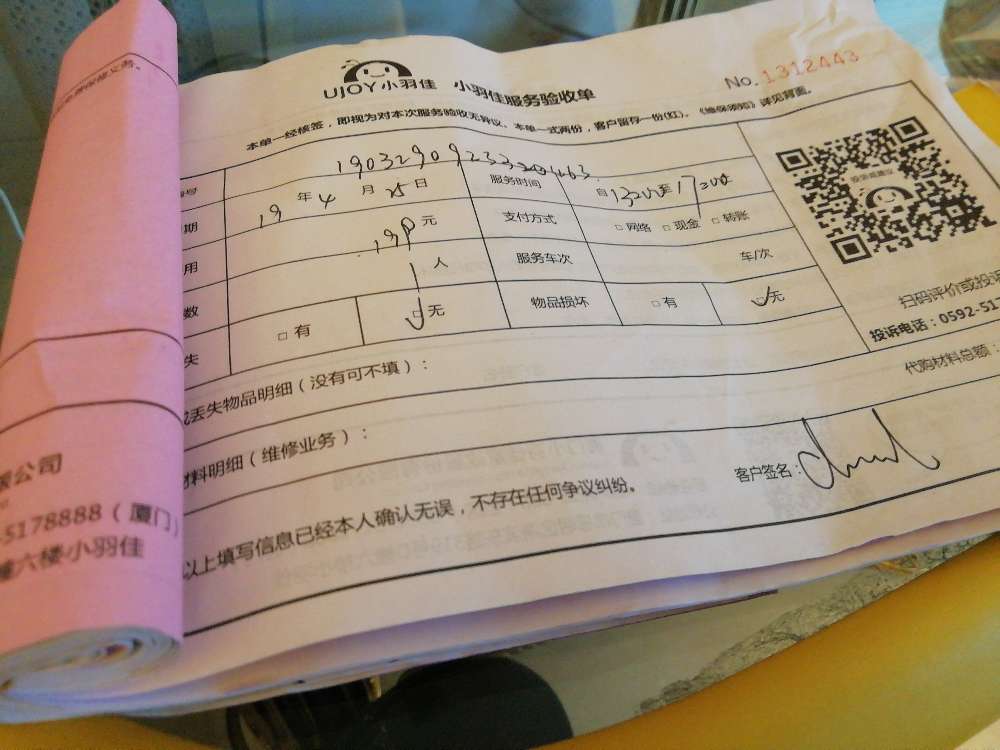 UJOY小羽佳 小羽佳服务验收单
No. 1312443
本单一经核签，即视为对本次服务验收无异议。本单一式两份，客户留存一份(红)。《维保须知》详见背面。
号 服务时间 自13:00至17:00
期 19年4月25日 支付方式 □网络 □现金 □转账
用 198元 服务车次 车/次
数 1人 物品损坏 □有 □无
失 □有 □无
扫码评价或投诉
投诉电话：0592-51
或丢失物品明细（没有可不填）：
代购材料总额：
材料明细（维修业务）：
客户签名：
以上填写信息已经本人确认无误，不存在任何争议纠纷。
限公司
-5178888（厦门）
幢六楼小羽佳